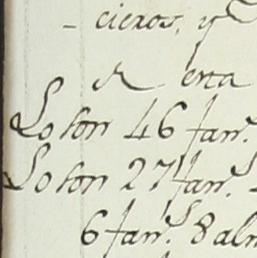 - cieros, y
R esta
Lo son 46 fan.ˢ
Lo son 27 fan.ˢ
6 fan.ˢ 8 alm